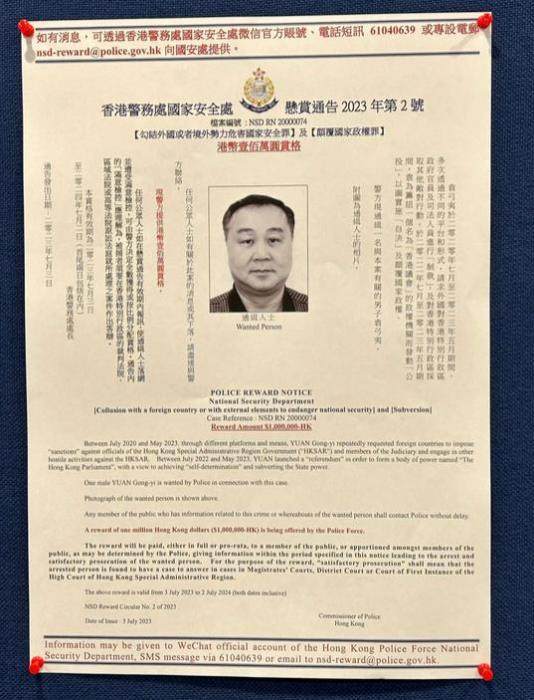 如有消息，可透過香港警務處國家安全處微信官方賬號、電話短訊 61040639 或專設電郵
nsd-reward@police.gov.hk 向國安處提供。
香港警務處國家安全處 懸賞通告 2023 年第 2 號
檔案編號：NSD RN 20000074
【勾結外國或者境外勢力危害國家安全罪】及【顛覆國家政權罪】
港幣壹佰萬圓賞格
袁弓夷於二○二○年七月至二○二三年五月期間，
多次透過不同的平台和形式，請求外國對香港特別行政區
政府官員及司法人員進行「制裁」及對香港特別行政區採
取其他敵對行動。於二○二二年七月至二○二三年五月期
間，袁為籌組一個名為「香港議會」的政權機關而發動「公
投」，以圖實施「自決」及顛覆國家政權。
警方現通緝一名與本案有關的男子袁弓夷。
附圖為通緝人士的相片。
任何公眾人士如有關於此案的消息或其下落，請盡速與警
方聯絡。
現警方提供港幣壹佰萬圓賞格。
任何公眾人士如在懸賞通告有效期內報訊，使通緝人士落網
並遭受滿意檢控，可由警方決定全數獲得或按比例分配賞格。通告內
的「滿意檢控」應理解為，被捕者須要在香港特別行政區的裁判法院、
區域法院或高等法院原訟法庭就所處理之案件作出答辯。
本賞格有效期為二○二三年七月三日
至二○二四年七月二日（首尾兩日包括在內）
香港警務處處長
通告發出日期：二○二三年七月三日
通緝人士
Wanted Person
POLICE REWARD NOTICE
National Security Department
[Collusion with a foreign country or with external elements to endanger national security] and [Subversion]
Case Reference : NSD RN 20000074
Reward Amount $1,000,000-HK
Between July 2020 and May 2023, through different platforms and means, YUAN Gong-yi repeatedly requested foreign countries to impose
"sanctions" against officials of the Hong Kong Special Administrative Region Government ("HKSAR") and members of the Judiciary and engage in other
hostile activities against the HKSAR. Between July 2022 and May 2023, YUAN launched a "referendum" in order to form a body of power named "The
Hong Kong Parliament", with a view to achieving "self-determination" and subverting the State power.
One male YUAN Gong-yi is wanted by Police in connection with this case.
Photograph of the wanted person is shown above.
Any member of the public who has information related to this crime or whereabouts of the wanted person shall contact Police without delay.
A reward of one million Hong Kong dollars ($1,000,000-HK) is being offered by the Police Force.
The reward will be paid, either in full or pro-rata, to a member of the public, or apportioned amongst members of the
public, as may be determined by the Police, giving information within the period specified in this notice leading to the arrest and
satisfactory prosecution of the wanted person. For the purpose of the reward, "satisfactory prosecution" shall mean that the
arrested person is found to have a case to answer in cases in Magistrates' Courts, District Court or Court of First Instance of the
High Court of Hong Kong Special Administrative Region.
The above reward is valid from 3 July 2023 to 2 July 2024 (both dates inclusive)
NSD Reward Circular No. 2 of 2023
Date of Issue : 3 July 2023
Commissioner of Police
Hong Kong
Information may be given to WeChat official account of the Hong Kong Police Force National
Security Department, SMS message via 61040639 or email to nsd-reward@police.gov.hk.